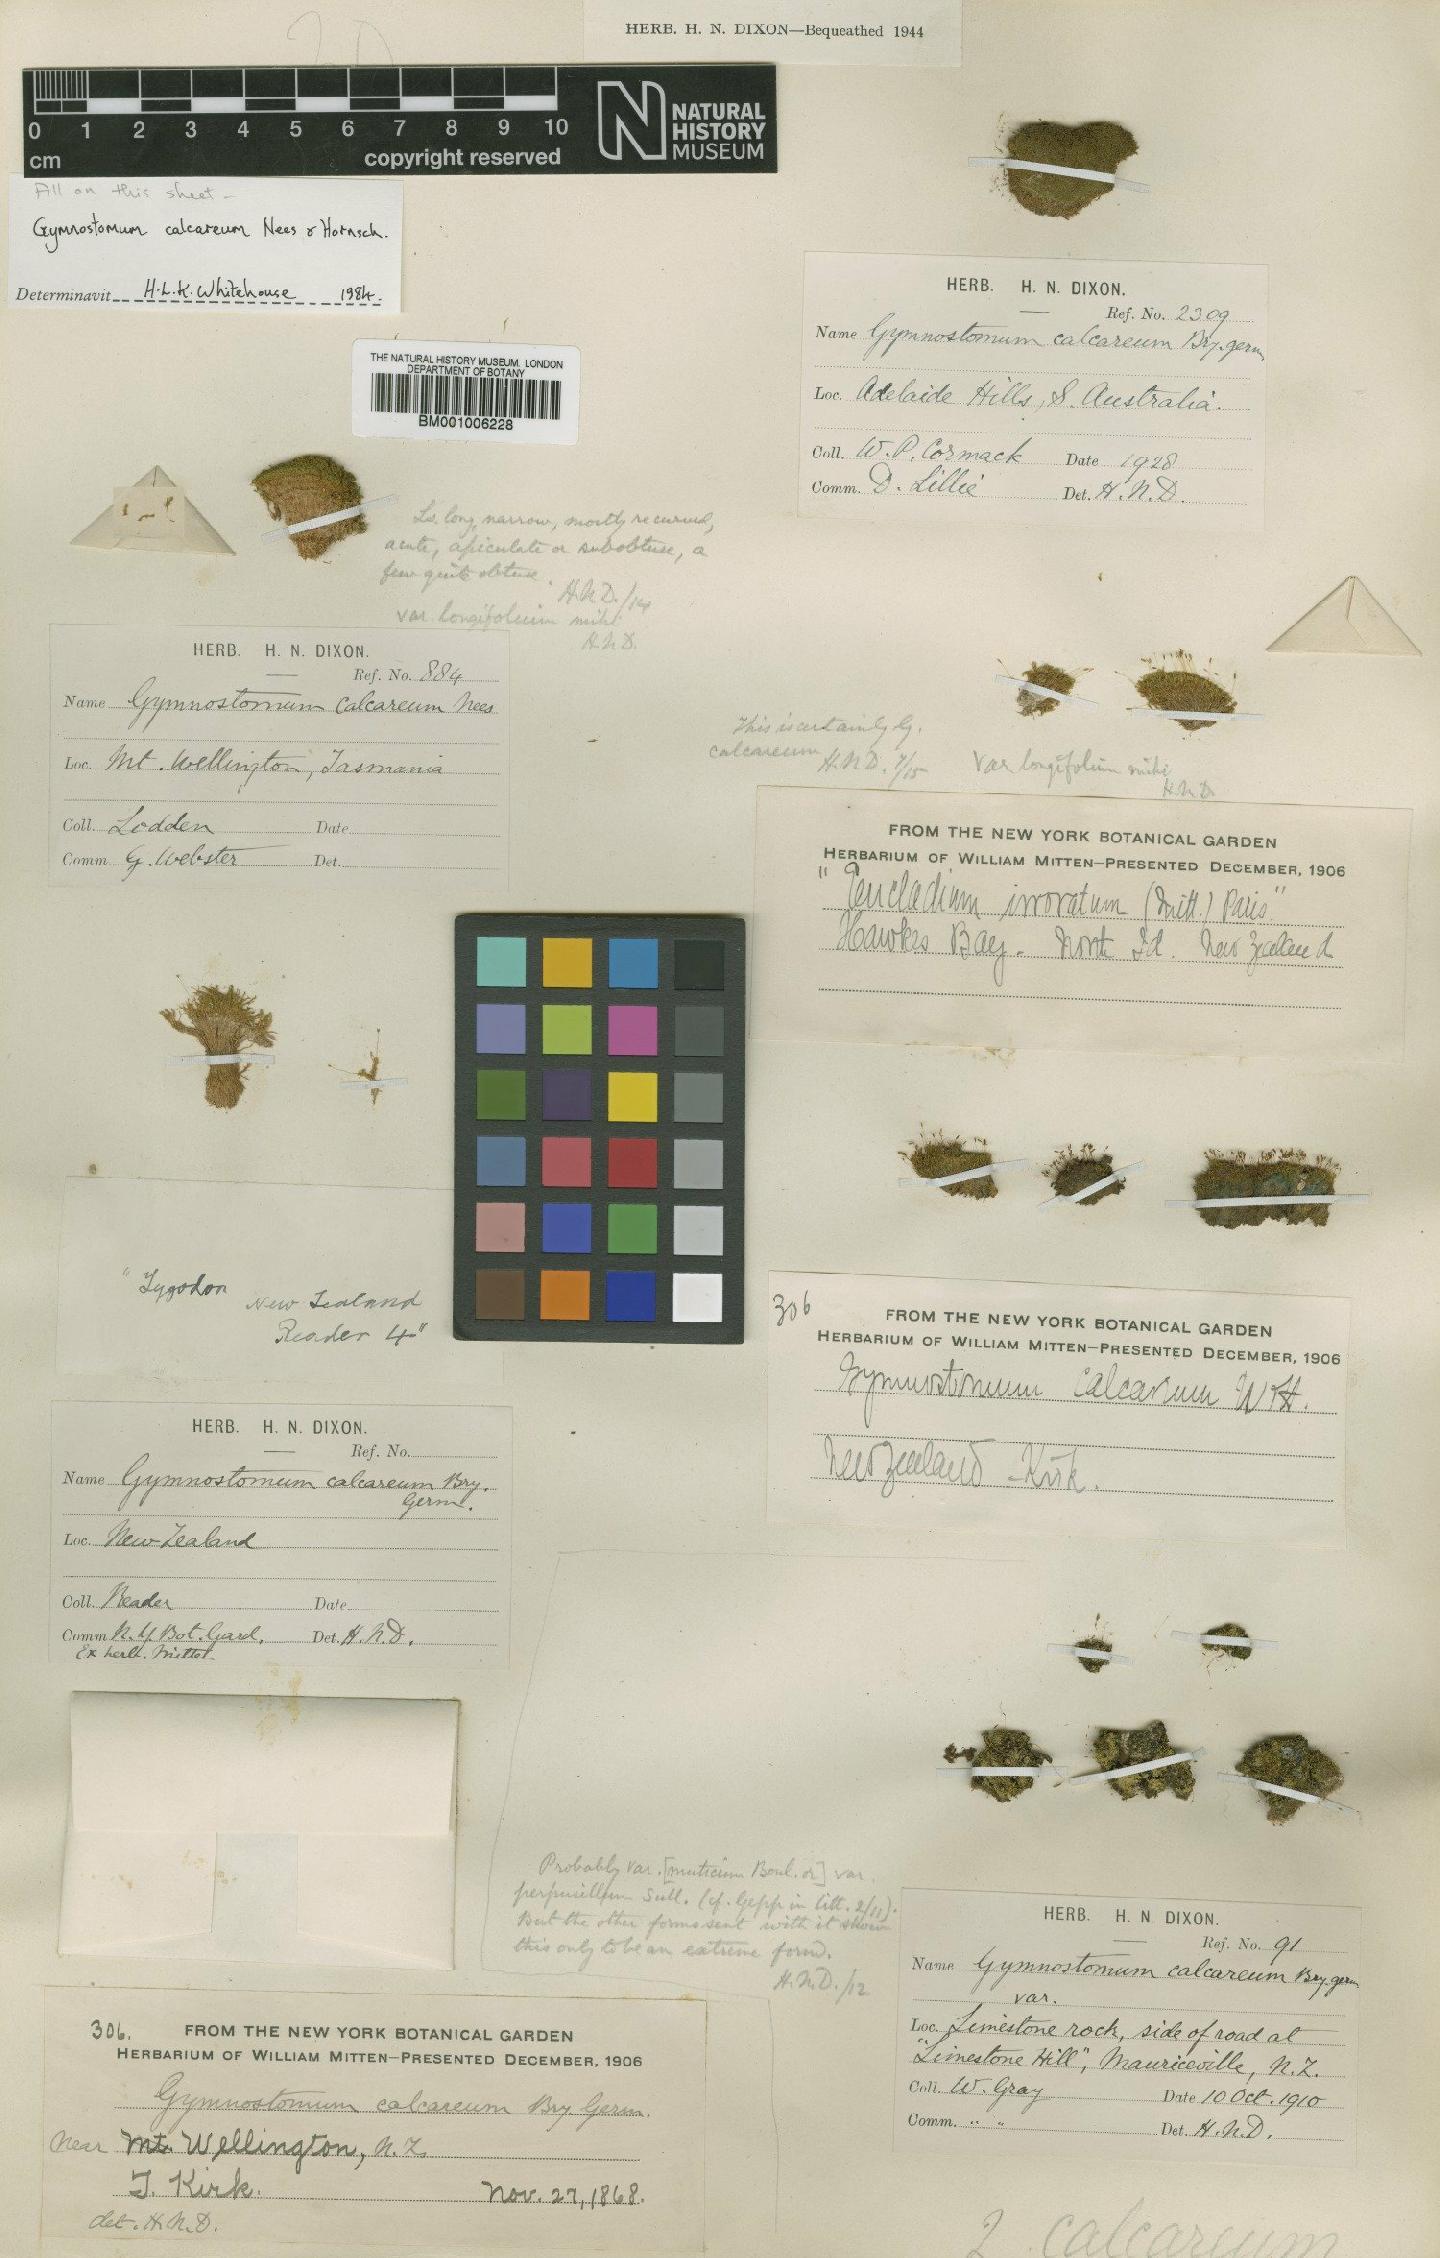 HERB. H. N. DIXON—Bequeathed 1944
0 1 2 3 4 5 6 7 8 9 10
cm
copyright reserved
NATURAL
HISTORY
MUSEUM
All on this sheet –
Gymnostomum calcareum Nees & Hornsch.
Determinavit H.L.K. Whitehouse 1984.
THE NATURAL HISTORY MUSEUM, LONDON
DEPARTMENT OF BOTANY
BM001006228
Ls. long, narrow, mostly recurved,
acute, apiculate or subobtuse, a
few quite obtuse.
H.N.D. /14
var. longifolium mihi
H.N.D.
HERB. H. N. DIXON.
Ref. No. 884
Name Gymnostomum calcareum Nees
Loc. Mt. Wellington, Tasmania
Coll. Lodden Date
Comm. G. Webster Det.
"Zygodon
New Zealand
Reader 4"
HERB. H. N. DIXON.
Ref. No.
Name Gymnostomum calcareum Bry.
Germ.
Loc. New Zealand
Coll. Reader Date
Comm N.Y. Bot. Gard. Det. H.N.D.
Ex herb. Mitten
306. FROM THE NEW YORK BOTANICAL GARDEN
HERBARIUM OF WILLIAM MITTEN—PRESENTED DECEMBER, 1906
Gymnostomum calcareum Bry. Germ.
Near Mt. Wellington, N.Z.
T. Kirk. Nov. 27, 1868.
det. H.N.D.
HERB. H. N. DIXON.
Ref. No. 2309
Name Gymnostomum calcareum Bry. germ
Loc. Adelaide Hills, S. Australia.
Coll. W. P. Cormack Date 1928
Comm. D. Lillie Det. H.N.D.
This is certainly G.
calcareum H.N.D. 7/15
Var longifolium mihi
H.N.D.
FROM THE NEW YORK BOTANICAL GARDEN
HERBARIUM OF WILLIAM MITTEN—PRESENTED DECEMBER, 1906
"Eucladium irroratum (Mitt.) Paris"
Hawkes Bay. North Id. New Zealand
306 FROM THE NEW YORK BOTANICAL GARDEN
HERBARIUM OF WILLIAM MITTEN—PRESENTED DECEMBER, 1906
Gymnostomum calcareum N & H.
New Zealand – Kirk.
Probably var. [muticum Boul. or] var.
perpusillum Sull. (cf. Gepp in litt. 2/11).
But the other forms sent with it show
this only to be an extreme form.
H.N.D. /12
HERB. H. N DIXON.
Ref. No. 91
Name Gymnostomum calcareum Bry. germ
var.
Loc. Limestone rock, side of road at
"Limestone Hill", Mauriceville, N.Z.
Coll. W. Gray Date 10 Oct. 1910
Comm. " " Det. H.N.D.
2 calcareum